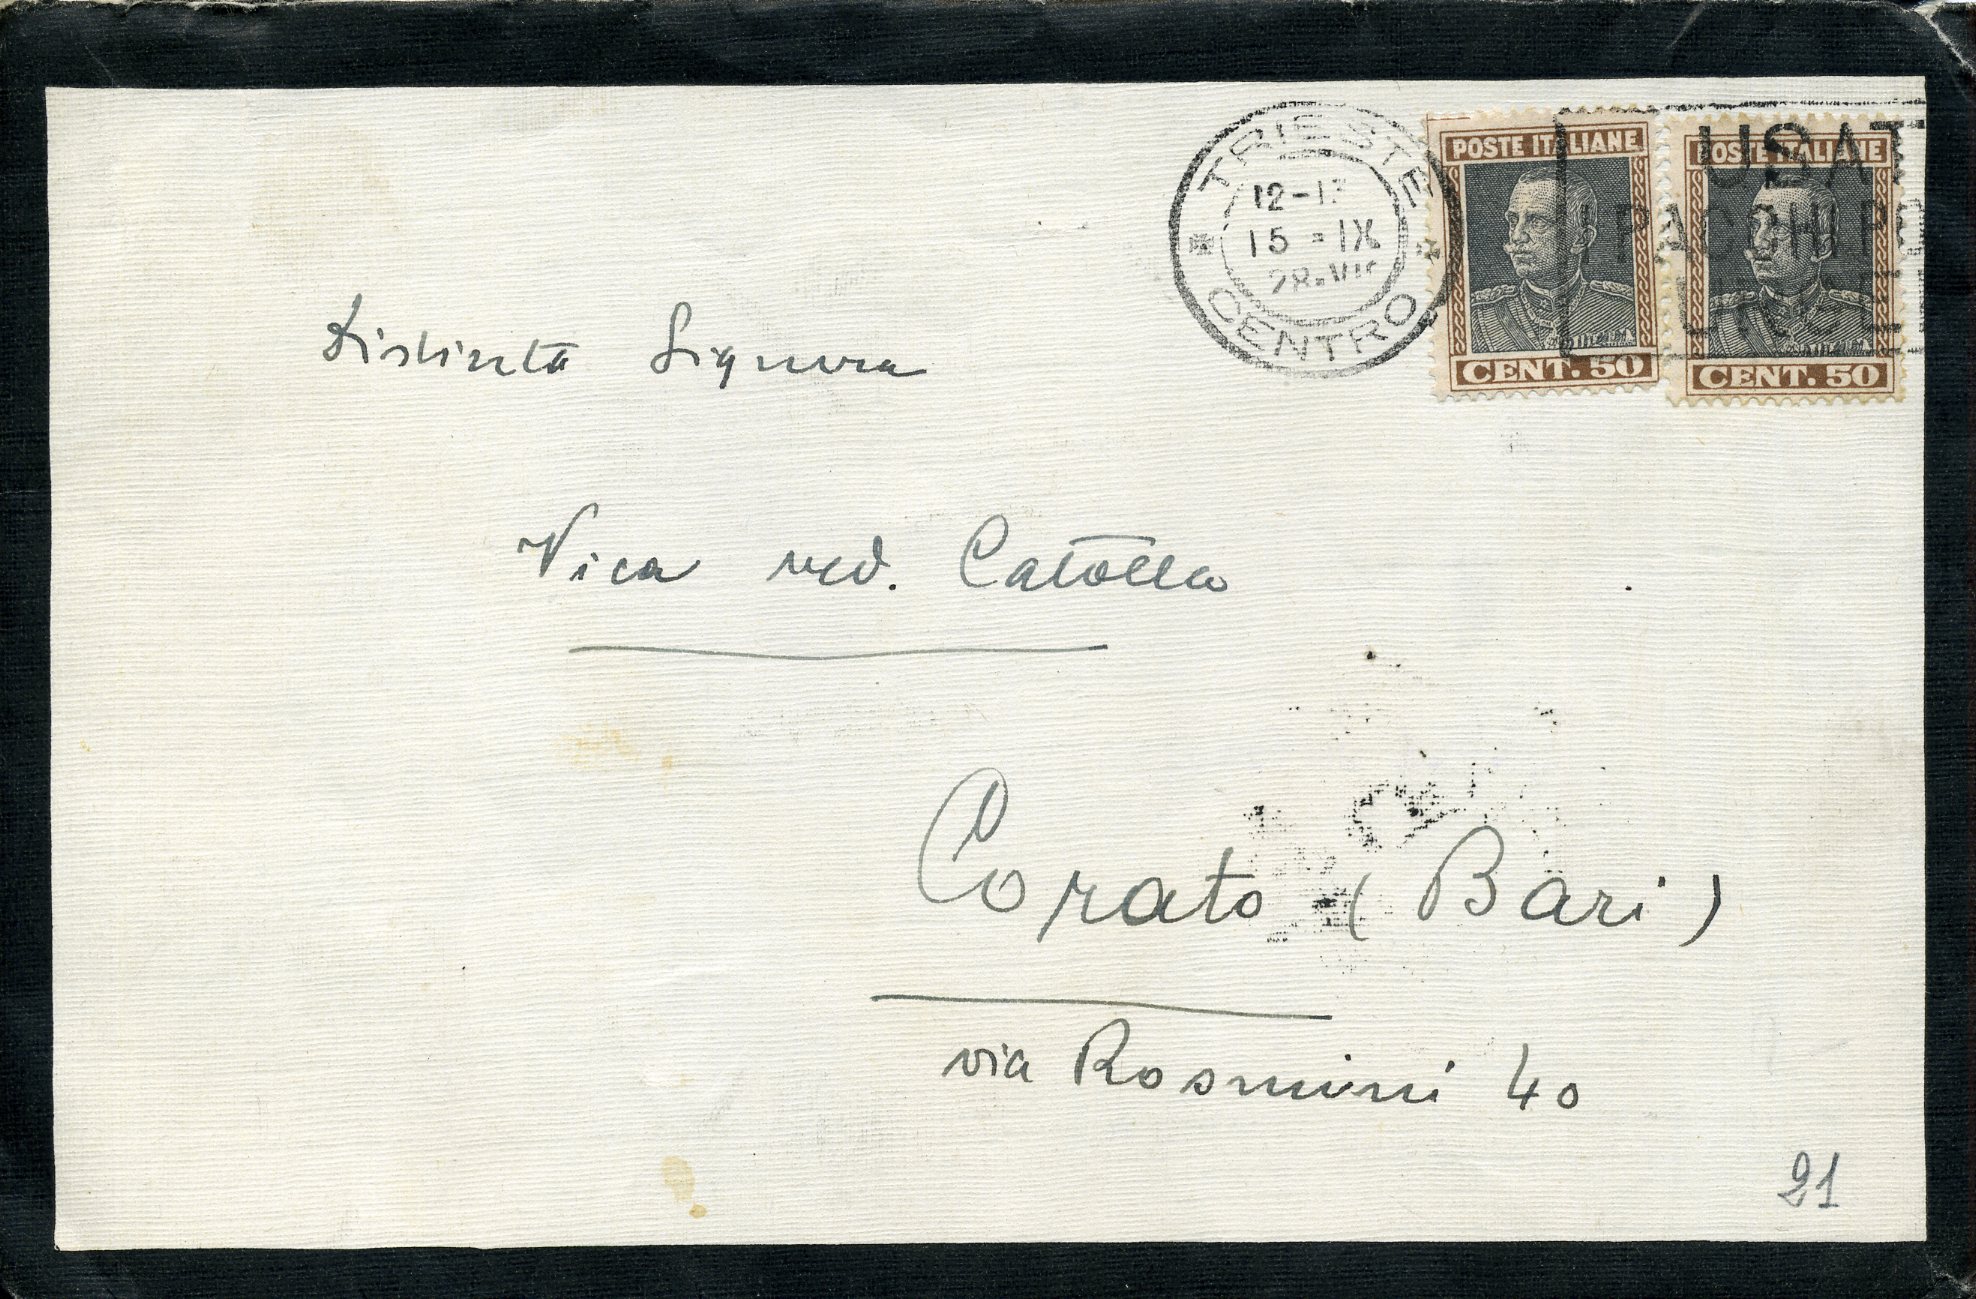 TRIESTE
12-13
15-IX
28.VI
CENTRO
POSTE ITALIANE
CENT. 50
POSTE ITALIANE
CENT. 50
USAT
I PACCHI PO
Distinta Signora
Vica ved. Catolla
Corato (Bari)
via Rosmini 40
21